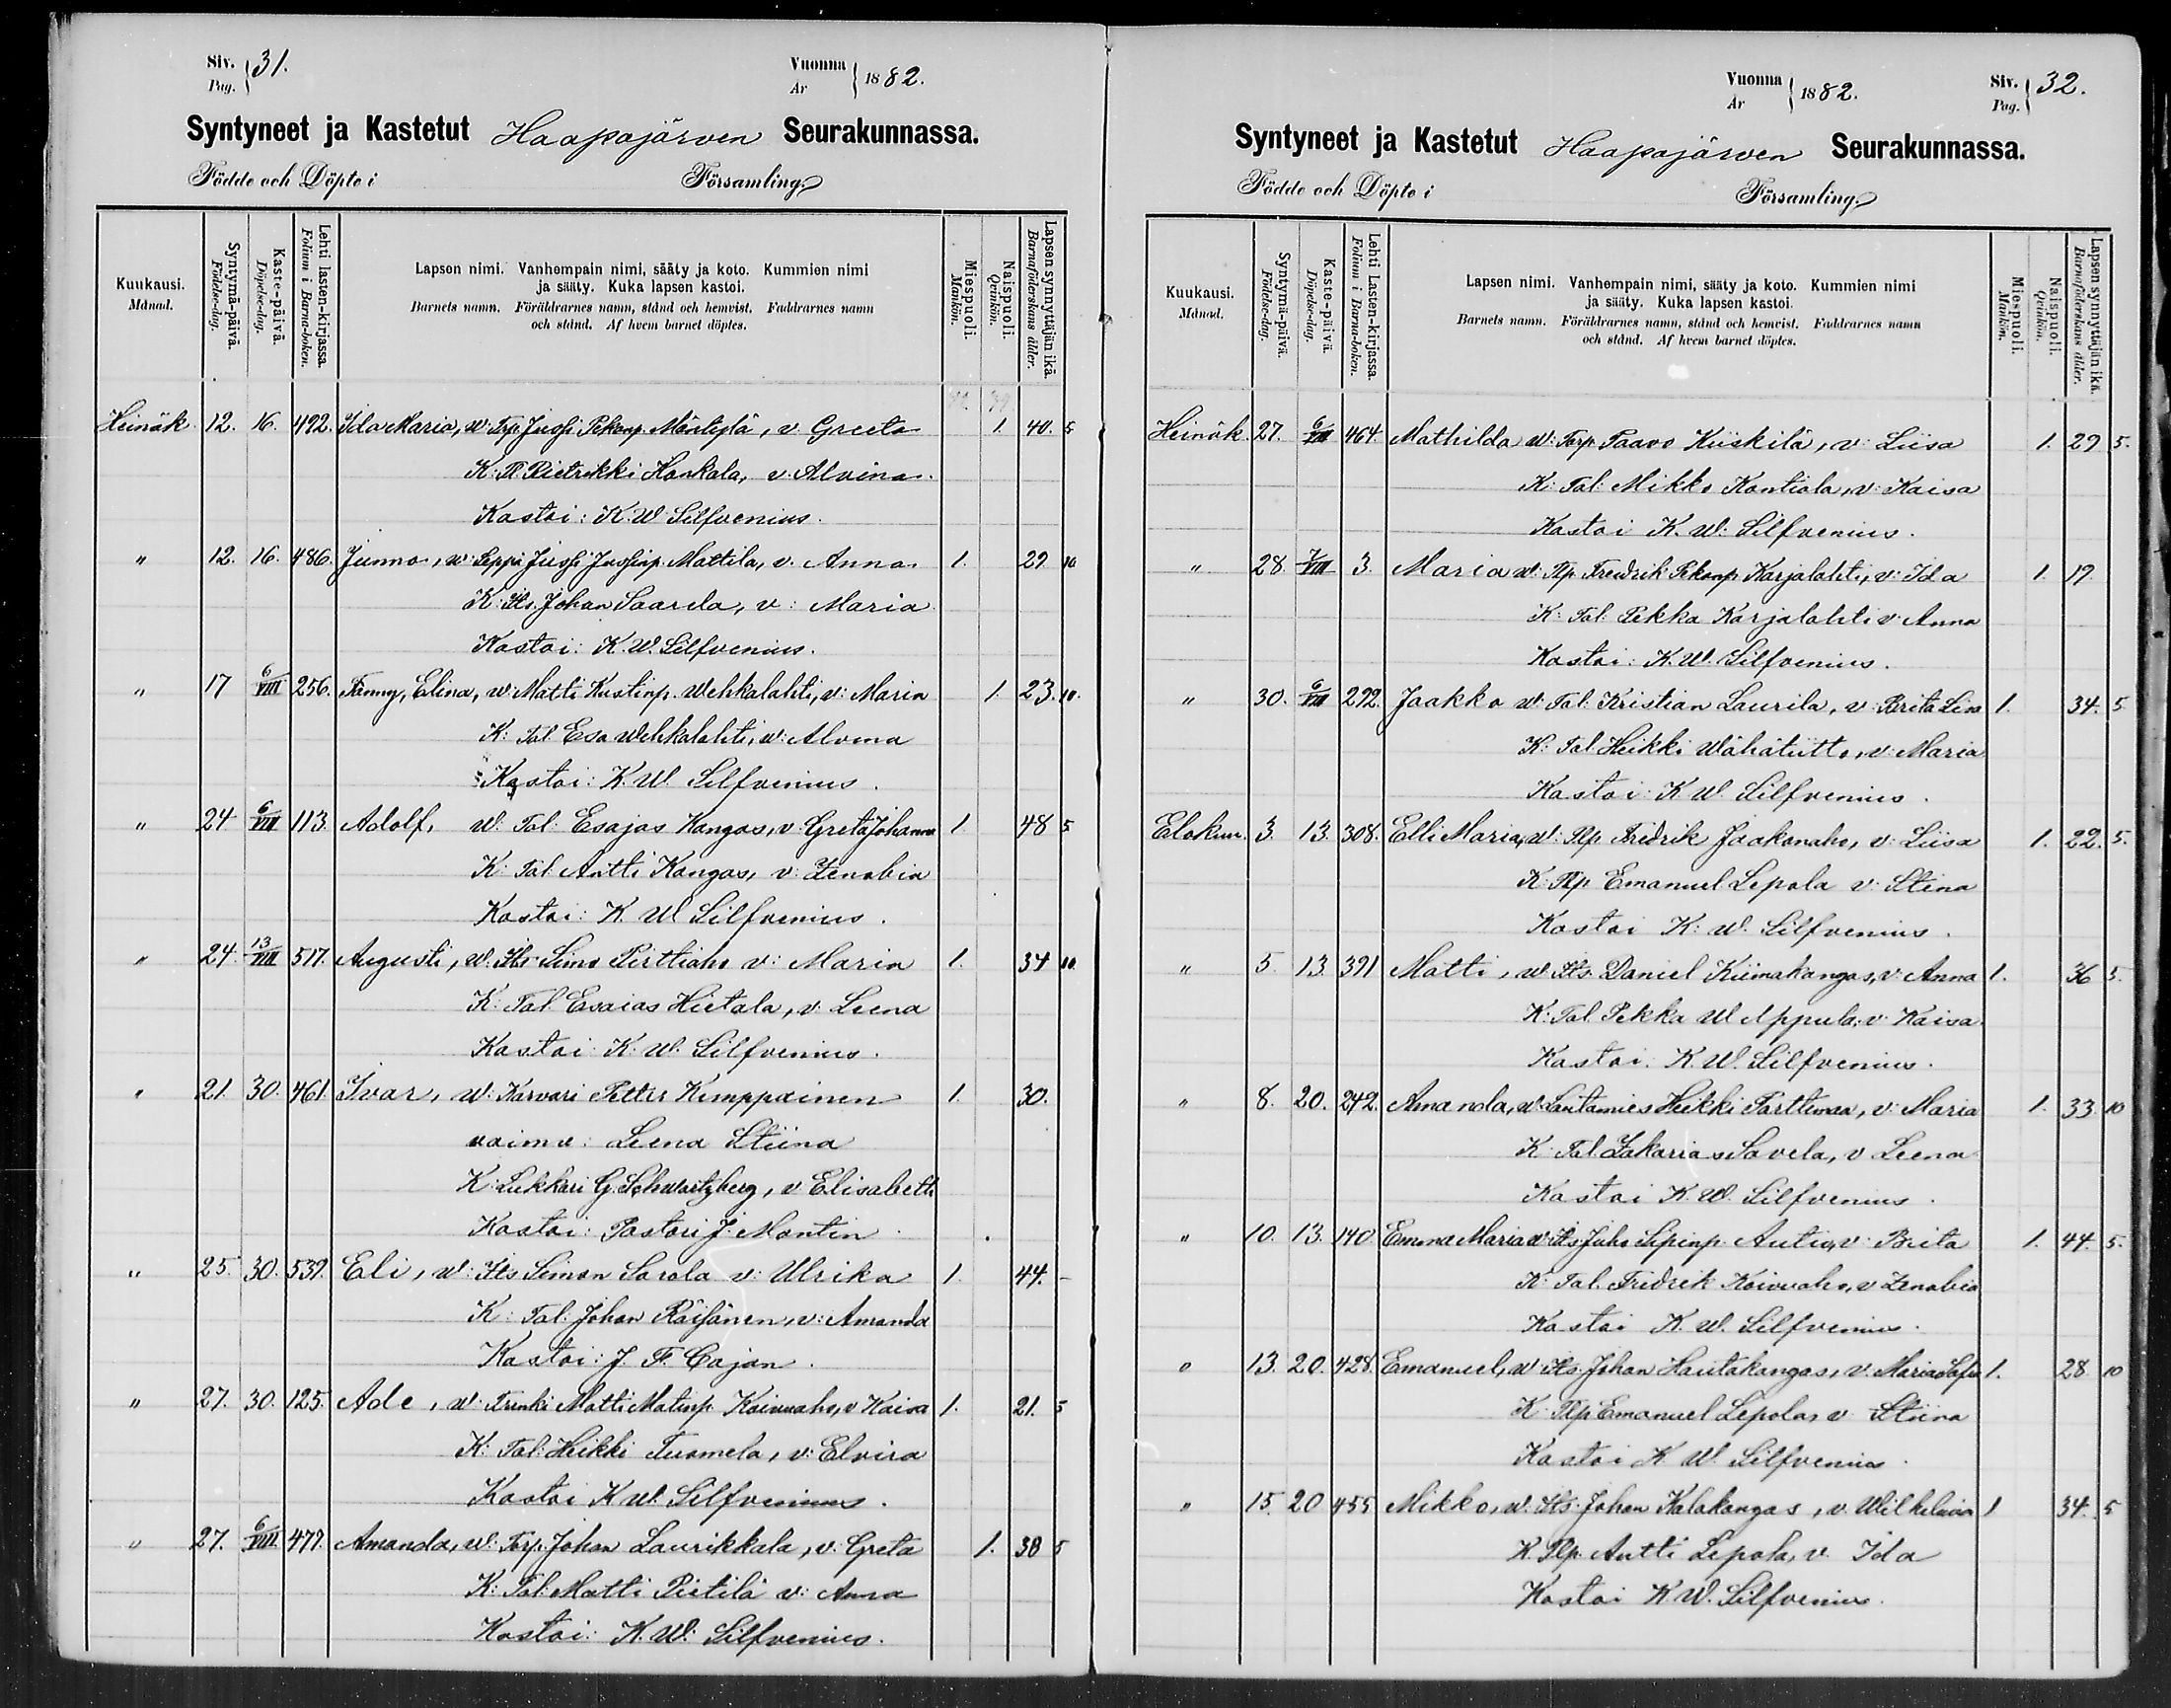 Siv. Pag. 31.
Vuonna År 1882.
Syntyneet ja Kastetut Haapajärven Seurakunnassa.
Födde och Döpte i Församling
Kuukausi. Månad.
Syntymä-päivä. Födelse-dag.
Kaste-päivä. Döpelse-dag.
Lehti lasten-kirjassa. Folium i Barna-boken.
Lapsen nimi. Vanhempain nimi, sääty ja koto. Kummien nimi
ja sääty. Kuka lapsen kastoi.
Barnets namn. Föräldrarnes namn, stånd och hemvist. Faddrarnes namn
och stånd. Af hvem barnet döptes.
Miespuoli. Mankön.
Naispuoli. Qvinkön.
Lapsen synnyttäjän ikä. Barnaföderskans ålder.
Heinäk. 12. 16. 492. Ida Maria, w: Torp. Juho Pekanp. Mäntylä, v: Greeta 1. 40. 5
K: Pietrikki Hankala, v: Alvina.
Kastoi: K. W. Silfvenius.
" 12. 16. 486. Junno, w: Seppä Juho Juhonp. Mattila, v. Anna. 1. 29 10
K: Its. Johan Saarela, v: Maria
Kastoi: K. W. Silfvenius.
" 17 6/VIII 256. Fanny, Elina, w: Matti Kustinp. Wehkalahti, v: Maria 1. 23. 10.
K: Tal. Esa Wehkalahti, v: Alvina
Kastoi: K. W. Silfvenius.
" 24 6/VIII 113. Adolf, w. Tal: Esajas Kangas, v: Greta Johanna 1 48 5
K: Tal. Antti Kangas, v: Zenobia
Kastoi: K. W Silfvenius.
" 24. 13/VIII 517. Augusti, w. Its Simo Pirttiaho v: Maria 1. 34 10.
K: Tal. Esaias Hietala, v: Leena
Kastoi: K. W. Silfvenius.
" 21. 30. 461. Ivar, w: Karvari Petter Kemppainen 1. 30.
vaimo: Leena Stiina
K: Lukkari G. Schwartzberg, v Elisabeth
Kastoi: Pastori J. Montin
" 25. 30. 539. Eli, w: Its Simon Sarola v: Ulrika 1. 44. -
K: Tal: Johan Räisänen, v: Amanda
Kastoi: J. F. Cajan.
" 27. 30. 125. Ade, w: Trenki Matti Matinp. Koivuaho, v Kaisa 1. 21. 5
K: Tal: Heikki Tuomela, v: Elvira
Kastoi K W. Silfvenius.
" 27. 6/VIII 477. Amanda, w: Torp. Johan Laurikkala, v: Greta 1. 38 5
K: Tal: Matti Pietilä v: Anna
Kastoi: K. W. Silfvenius.
Vuonna År 1882.
Siv. Pag. 32.
Syntyneet ja Kastetut Haapajärven Seurakunnassa.
Födde och Döpte i Församling
Kuukausi. Månad.
Syntymä-päivä. Födelse-dag.
Kaste-päivä. Döpelse-dag.
Lehti Lasten-kirjassa. Folium i Barna-boken.
Lapsen nimi. Vanhempain nimi, sääty ja koto. Kummien nimi
ja sääty. Kuka lapsen kastoi.
Barnets namn. Föräldrarnes namn, stånd och hemvist. Faddrarnes namn
och stånd. Af hvem barnet döptes.
Miespuoli. Mankön.
Naispuoli. Qvinkön.
Lapsen synnyttäjän ikä. Barnaföderskans ålder.
Heinäk. 27. 6/VIII 464. Mathilda w: Torp. Paavo Kiiskilä, v: Liisa 1. 29 5.
K: Tal: Mikko Kantiola, v: Kaisa
Kastoi K. W. Silfvenius.
" 28. 7/VIII 3. Maria w: Plp. Fredrik Pekanp. Karjalahti, v: Ida 1. 19.
K: Tal. Pekka Karjalahti v: Anna
Kastoi: K. W. Silfvenius.
" 30. 6/VIII 292. Jaakko w: Tal: Kristian Laurila, v: Brita Lisa 1. 34. 5
K: Tal Heikki Wähätiitto, v: Maria
Kastoi: K W. Silfvenius.
Elokuu. 3. 13. 308. Elli Maria, w: Plp Fredrik Jaakonaho, v: Liisa 1. 22. 5.
K: Plp Emanuel Lepola v: Stina
Kastoi K: W. Silfvenius.
" 5. 13. 391 Matti, w. Its. Daniel Kiimakangas, v: Anna 1. 36 5.
K: Tal. Pekka W Appula, v: Kaisa.
Kastoi: K. W. Silfvenius.
" 8. 20. 242. Amanda, w: Lautamies Heikki Parttimaa, v: Maria 1. 33 10
K: Tal. Zakarias Savela, v Leena
Kastoi K. W. Silfvenius.
" 10. 13. 140 Emma Maria w: Its Juho Sipinp. Autio, v: Brita 1. 44. 5.
K: Tal. Fridrik Koivuaho, v Zenobia
Kastoi K. W. Silfvenius.
" 13. 20. 428. Emanuel, w: Its. Johan Hautakangas, v. Maria Sofia 1. 28. 10
K: Plp Emanuel Lepola, v Stiina
Kastoi K W. Silfvenius.
" 15. 20 455 Mikko, w: Its. Johan Kalakangas, v. Wilhelmina 1 34. 5
K. Plp. Antti Lepola, v. Ida
Kastoi K. W. Silfvenius.